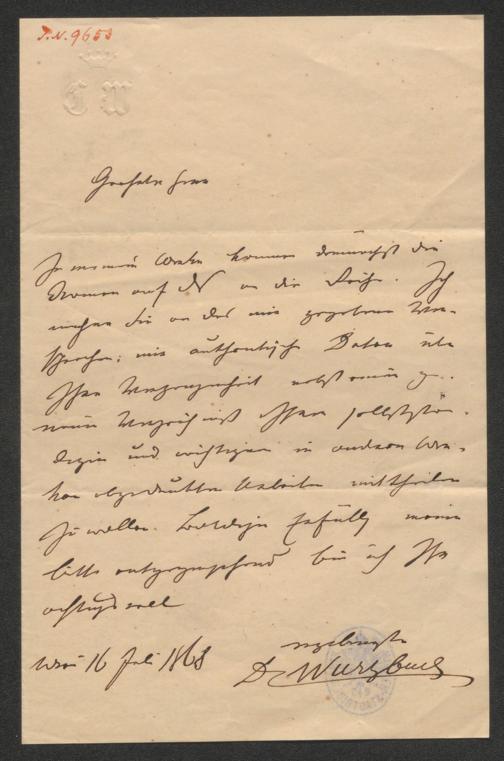 J.N. 9653
C W
Geehrter Herr
In meinem Werke kommen demnächst die
Namen auf N an die Reihe. Ich
mahne Sie an das mir gegebene Ver-
sprechen: mir authentische Daten über
Ihre Vergangenheit nebst einem
Verzeichniß Ihrer selbststän-
digen und wichtigen in andern Wer-
ken abgedruckten Arbeiten mittheilen
zu wollen. gefälliger meiner
Bitte entgegensehend bin ich Ihr
achtungsvoll
ergebenster
Wien 16 Juli 1868
Dr Wurzbach